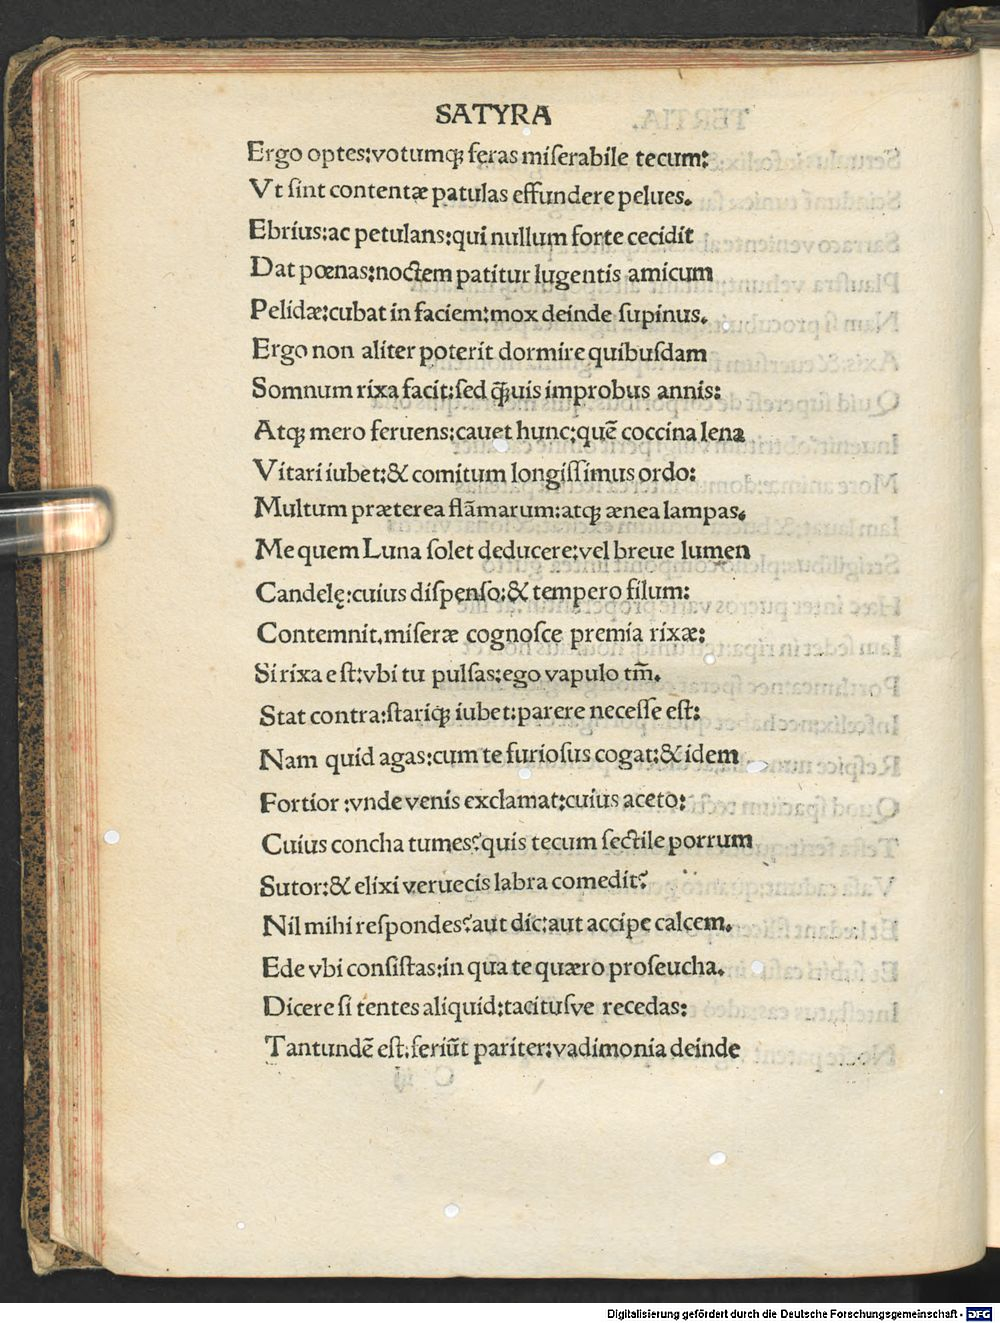 SATYRA
Ergo optes:votumqꝫ feras miſerabile tecum:
Vt ſint contentæ patulas effundere pelues.
Ebrius:ac petulans:qui nullum forte cecidit
Dat pœnas:noctem patitur lugentis amicum
Pelidæ:cubat in faciem:mox deinde ſupinus.
Ergo non aliter poterit dormire quibuſdam
Somnum rixa facit:ſed q̃ꝫuis improbus annis:
Atqꝫ mero feruens:cauet hunc:quē coccina lena
Vitari iubet:& comitum longiſſimus ordo:
Multum præterea flāmarum:atqꝫ ænea lampas.
Me quem Luna ſolet deducere:vel breue lumen
Candelę:cuius diſpenſo:& tempero filum:
Contemnit.miſeræ cognoſce premia rixæ:
Si rixa eſt:vbi tu pulſas:ego vapulo tm̄.
Stat contra:ſtariqꝫ iubet:parere neceſſe eſt:
Nam quid agas:cum te furioſus cogat:& idem
Fortior :vnde venis exclamat:cuius aceto:
Cuius concha tumes?quis tecum ſectile porrum
Sutor:& elixi veruecis labra comedit?
Nil mihi reſpondes?aut dic:aut accipe calcem.
Ede vbi conſiſtas:in qua te quæro proſeucha.
Dicere ſi tentes aliquid:tacituſve recedas:
Tantundē eſt:feriūt pariter:vadimonia deinde
Digitalisierung gefördert durch die Deutsche Forschungsgemeinschaft - DFG